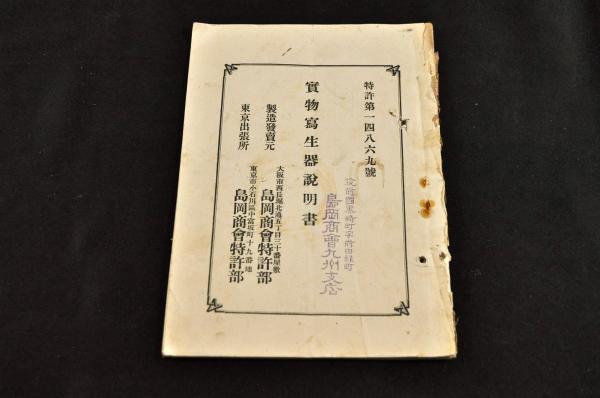 特許第一四八六九號
實物寫生器說明書
製造發賣元
大阪市西長堀北通五丁目三十番屋敷
島岡商會特許部
東京出張所
東京市小石川區中富坂町十九番地
島岡商會特許部
島岡商會九州支店